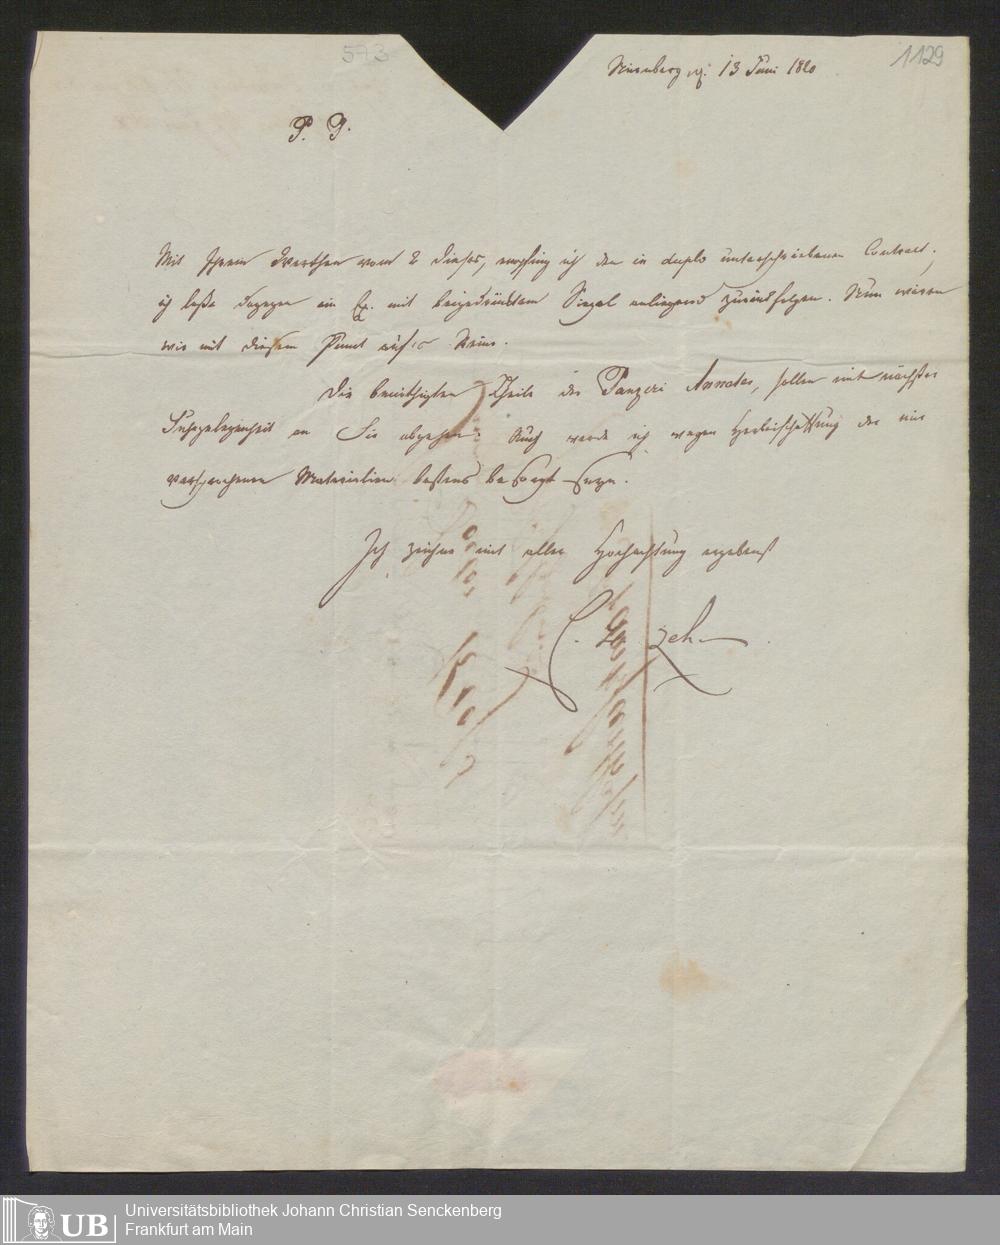 573
1129
Nürnberg 13 Juni 1820
P. P.
Mit Ihrem Werthen vom 2 dieses, empfing ich den in duplo unterschriebenen Contract.
ich laße dagegen ein Ex. mit beigedrücktem Siegel anliegend zurückfolgen. Nun wären
wir mit diesem Punct auf's Reine.
Die benöthigten Theile des Panzeri Annales, sollen mit nächster
Fuhrgelegenheit an Sie abgehen. Auch werde ich wegen Herbeischaffung der mir
versprochenen Materialien bestens besorgt seyn.
Ich zeichne mit aller Hochachtung ergebenst
Zeh
UB
Universitätsbibliothek Johann Christian Senckenberg
Frankfurt am Main